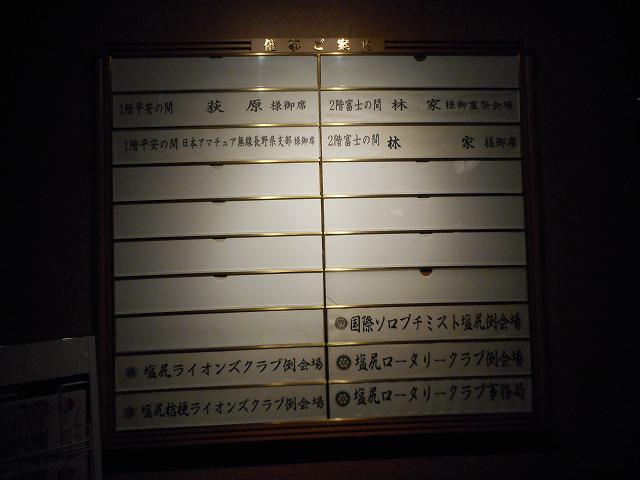 催事ご案内
1階平安の間 荻原 様御席
1階平安の間 日本アマチュア無線長野県支部 様御席
塩尻ライオンズクラブ例会場
塩尻桔梗ライオンズクラブ例会場
2階富士の間 林 家 様御霊祭会場
2階富士の間 林 家 様御席
国際ソロプチミスト塩尻例会場
塩尻ロータリークラブ例会場
塩尻ロータリークラブ事務局